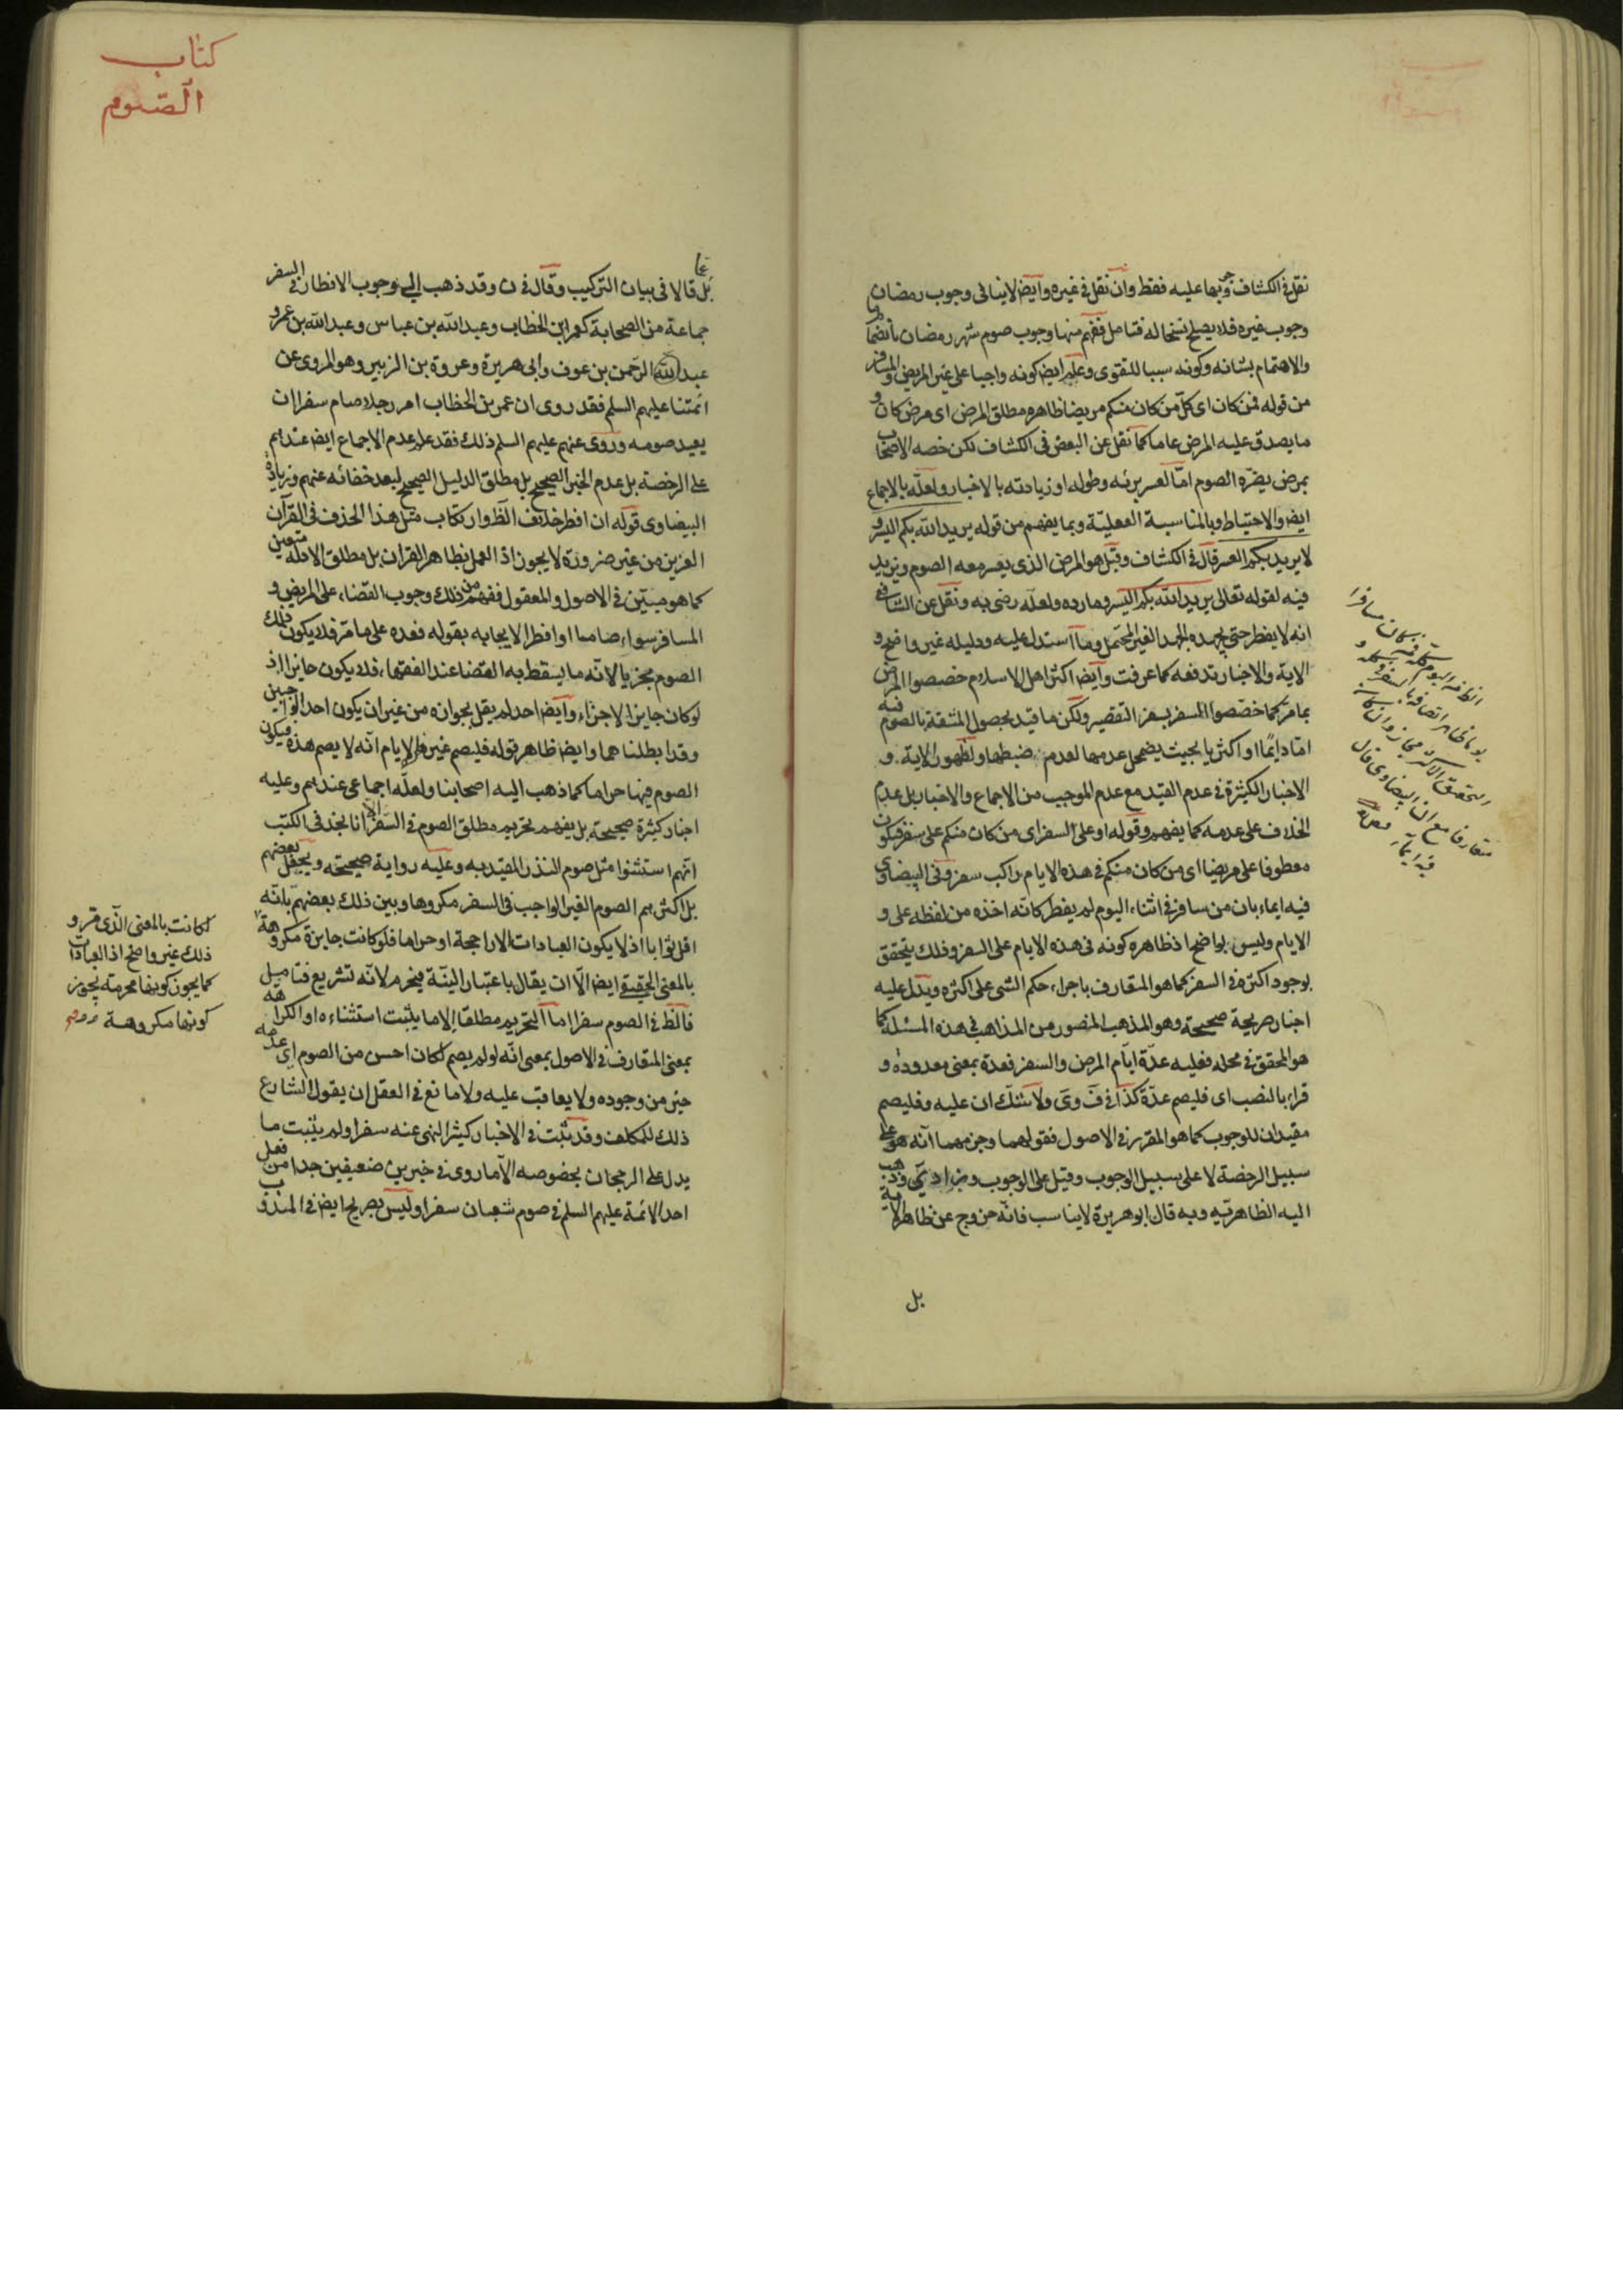 نقل فى الكشاف وجوبها عليه فقط وان نقل فى غيره وايض لا ينافى وجوب رمضان
وجوب غيره فلا يصلح نسخا له فتامل ففهم منها وجوب صوم شهر رمضان
والاهتمام بشانه وكونه سببا للتقوى وعلم ايض كونه واجبا على غير المريض والمسافر
من قوله فمن كان اى كل من كان منكم مريضا ظاهره مطلق المرض اى مرض كان و
ما يصدق عليه المرض عاما كما نقل عن البعض فى الكشاف لكن خصه الاصحاب
بمرض يضره الصوم اما لعسر برئه وطوله او زيادته بالاخبار ولعله بالاجماع
ايض والاحتياط وبالمناسبة العقلية وبما يفهم من قوله يريد الله بكم اليسر و
لا يريد بكم العسر قال فى الكشاف وقيل هو المرض الذى يعسر معه الصوم ويزيد
فيه لقوله تعالى يريد الله بكم اليسر وما رده ولعله رضى به ونقل عن الشافعى
انه لا يفطر حتى يجهده الجهد الغير المحتمل وما استدل عليه ودليله غير واضح و
الاية والاخبار تدفعه كما عرفت وايض اكثر اهل الاسلام خصصوا المرض
بما مر كما خصصوا السفر بسفر التقصير ولكن ما قيد بحصول المشقة بالصوم فيه
اما دايما او اكثريا بحيث يضمحل عدمها لعدم ضبطها ولظهور الاية و
الاخبار الكثيرة فى عدم القيد مع عدم الموجب من الاجماع والاخبار بل عدم
الخلاف على عدمه كما يفهم وقوله او على السفر اى من كان منكم على سفر فيكون
معطوفا على مريضا اى من كان منكم فى هذه الايام راكب سفر وفى البيضاوى
فيه ايماء بان من سافر فى اثناء اليوم لم يفطر كانه اخذه من لفظه على و
الايام وليس بواضح اذ ظاهره كونه فى هذه الايام على السفر وذلك يتحقق
بوجود اكثره فى السفر كما هو المتعارف باجراء حكم الشى على اكثره ويدل عليه
اخبار صريحة صحيحة وهو المذهب المنصور من المذاهب فى هذه المسئلة كما
هو المحقق فى محله فعليه عدة ايام المرض والسفر فعدة بمعنى معدودة و
قراء بالنصب اى فليصم عدة كذا فى ف وى ولا شك ان عليه وفليصم
مفيدان للوجوب كما هو المقرر فى الاصول فقولهما وجزمهما انه هو على
سبيل الرخصة لا على سبيل الوجوب وقيل على الوجوب وزاد ى وذهب
اليه الظاهرية وبه قال ابو هريرة لا يناسب فانه خروج عن ظاهر الاية
بل
كتاب
الصوم
بل قالا فى بيان التركيب وقال فى ن وقد ذهب الى وجوب الافطار فى السفر
جماعة من الصحابة كعمر ابن الخطاب وعبد الله بن عباس وعبد الله بن عمر و
عبد الله الرحمن بن عوف وابى هريرة وعروة بن الزبير وهو المروى عن
ائمتنا عليهم السلم فقد روى ان عمر بن الخطاب امر رجلا صام سفرا ان
يعيد صومه وروى عنهم عليهم السلم ذلك فقد علم عدم الاجماع ايض عندهم
على الرخصة بل عدم الخبر الصحيح بل مطلق الدليل الصحيح لبعد خفائه عنهم وزيادة
البيضاوى قوله ان افطر خلاف الظواهر كتاب مثل هذا الحذف فى القرآن
العزيز من غير ضرورة لا يجوز اذ العمل بظاهر القران بل مطلق الادلة متعين
كما هو مبين فى الاصول والمعقول ففهم من ذلك وجوب القضاء على المريض و
المسافر سواء صاما او افطرا لايجابه بقوله فعده على ما مر فلا يكون ذلك
الصوم مجزيا لانه ما يسقط به القضا عند الفقهاء فلا يكون جايزا اذ
لو كان جايزا لاجزاء وايض احد لم يقل بجوازه من غير ان يكون احد الواجبين
وقد ابطلناهما وايض ظاهر قوله فليصم غير هذه الايام انه لا يصم هذه فيكون
الصوم فيها حراما كما ذهب اليه اصحابنا ولعله اجماعى عندهم وعليه
اخبار كثيرة صحيحة بل يفهم تحريم مطلق الصوم فى السفر الا انا نجد فى الكتب
انهم استثنوا مثل صوم النذر المقيد به وعليه رواية صحيحة ويجعل بعضهم
بل اكثرهم الصوم الغير الواجب فى السفر مكروها وبين ذلك بعضهم بانه
اقل ثوابا اذ لا يكون العبادات الا راجحة او حراما فلو كانت جايزة مكروهة
بالمعنى الحقيقى ايض الا ان يقال باعتبار النية فيحرم لانه تشريع فتامل
فالظ فى الصوم سفرا اما التحريم مطلقا الا ما يثبت استثناءه او الكراهة
بمعنى المتعارف فى الاصول بمعنى انه لو لم يصم لكان احسن من الصوم اى عدمه
خير من وجوده ولا يعاقب عليه ولا مانع فى العقل ان يقول الشارع
ذلك للمكلف وقد ثبت فى الاخبار كثيرا النهى عنه سفرا ولم يثبت ما
يدل على الرجحان بخصوصه الا ما روى فى خبرين ضعيفين جدا من فعل
احد الائمة عليهم السلم فى صوم شعبان سفرا وليس بصريح ايض فى المندوب
لكانت بالمعنى الذى قرر و
ذلك غير واضح اذ العبادات
كما يجوز كونها محرمة يجوز
كونها مكروهة